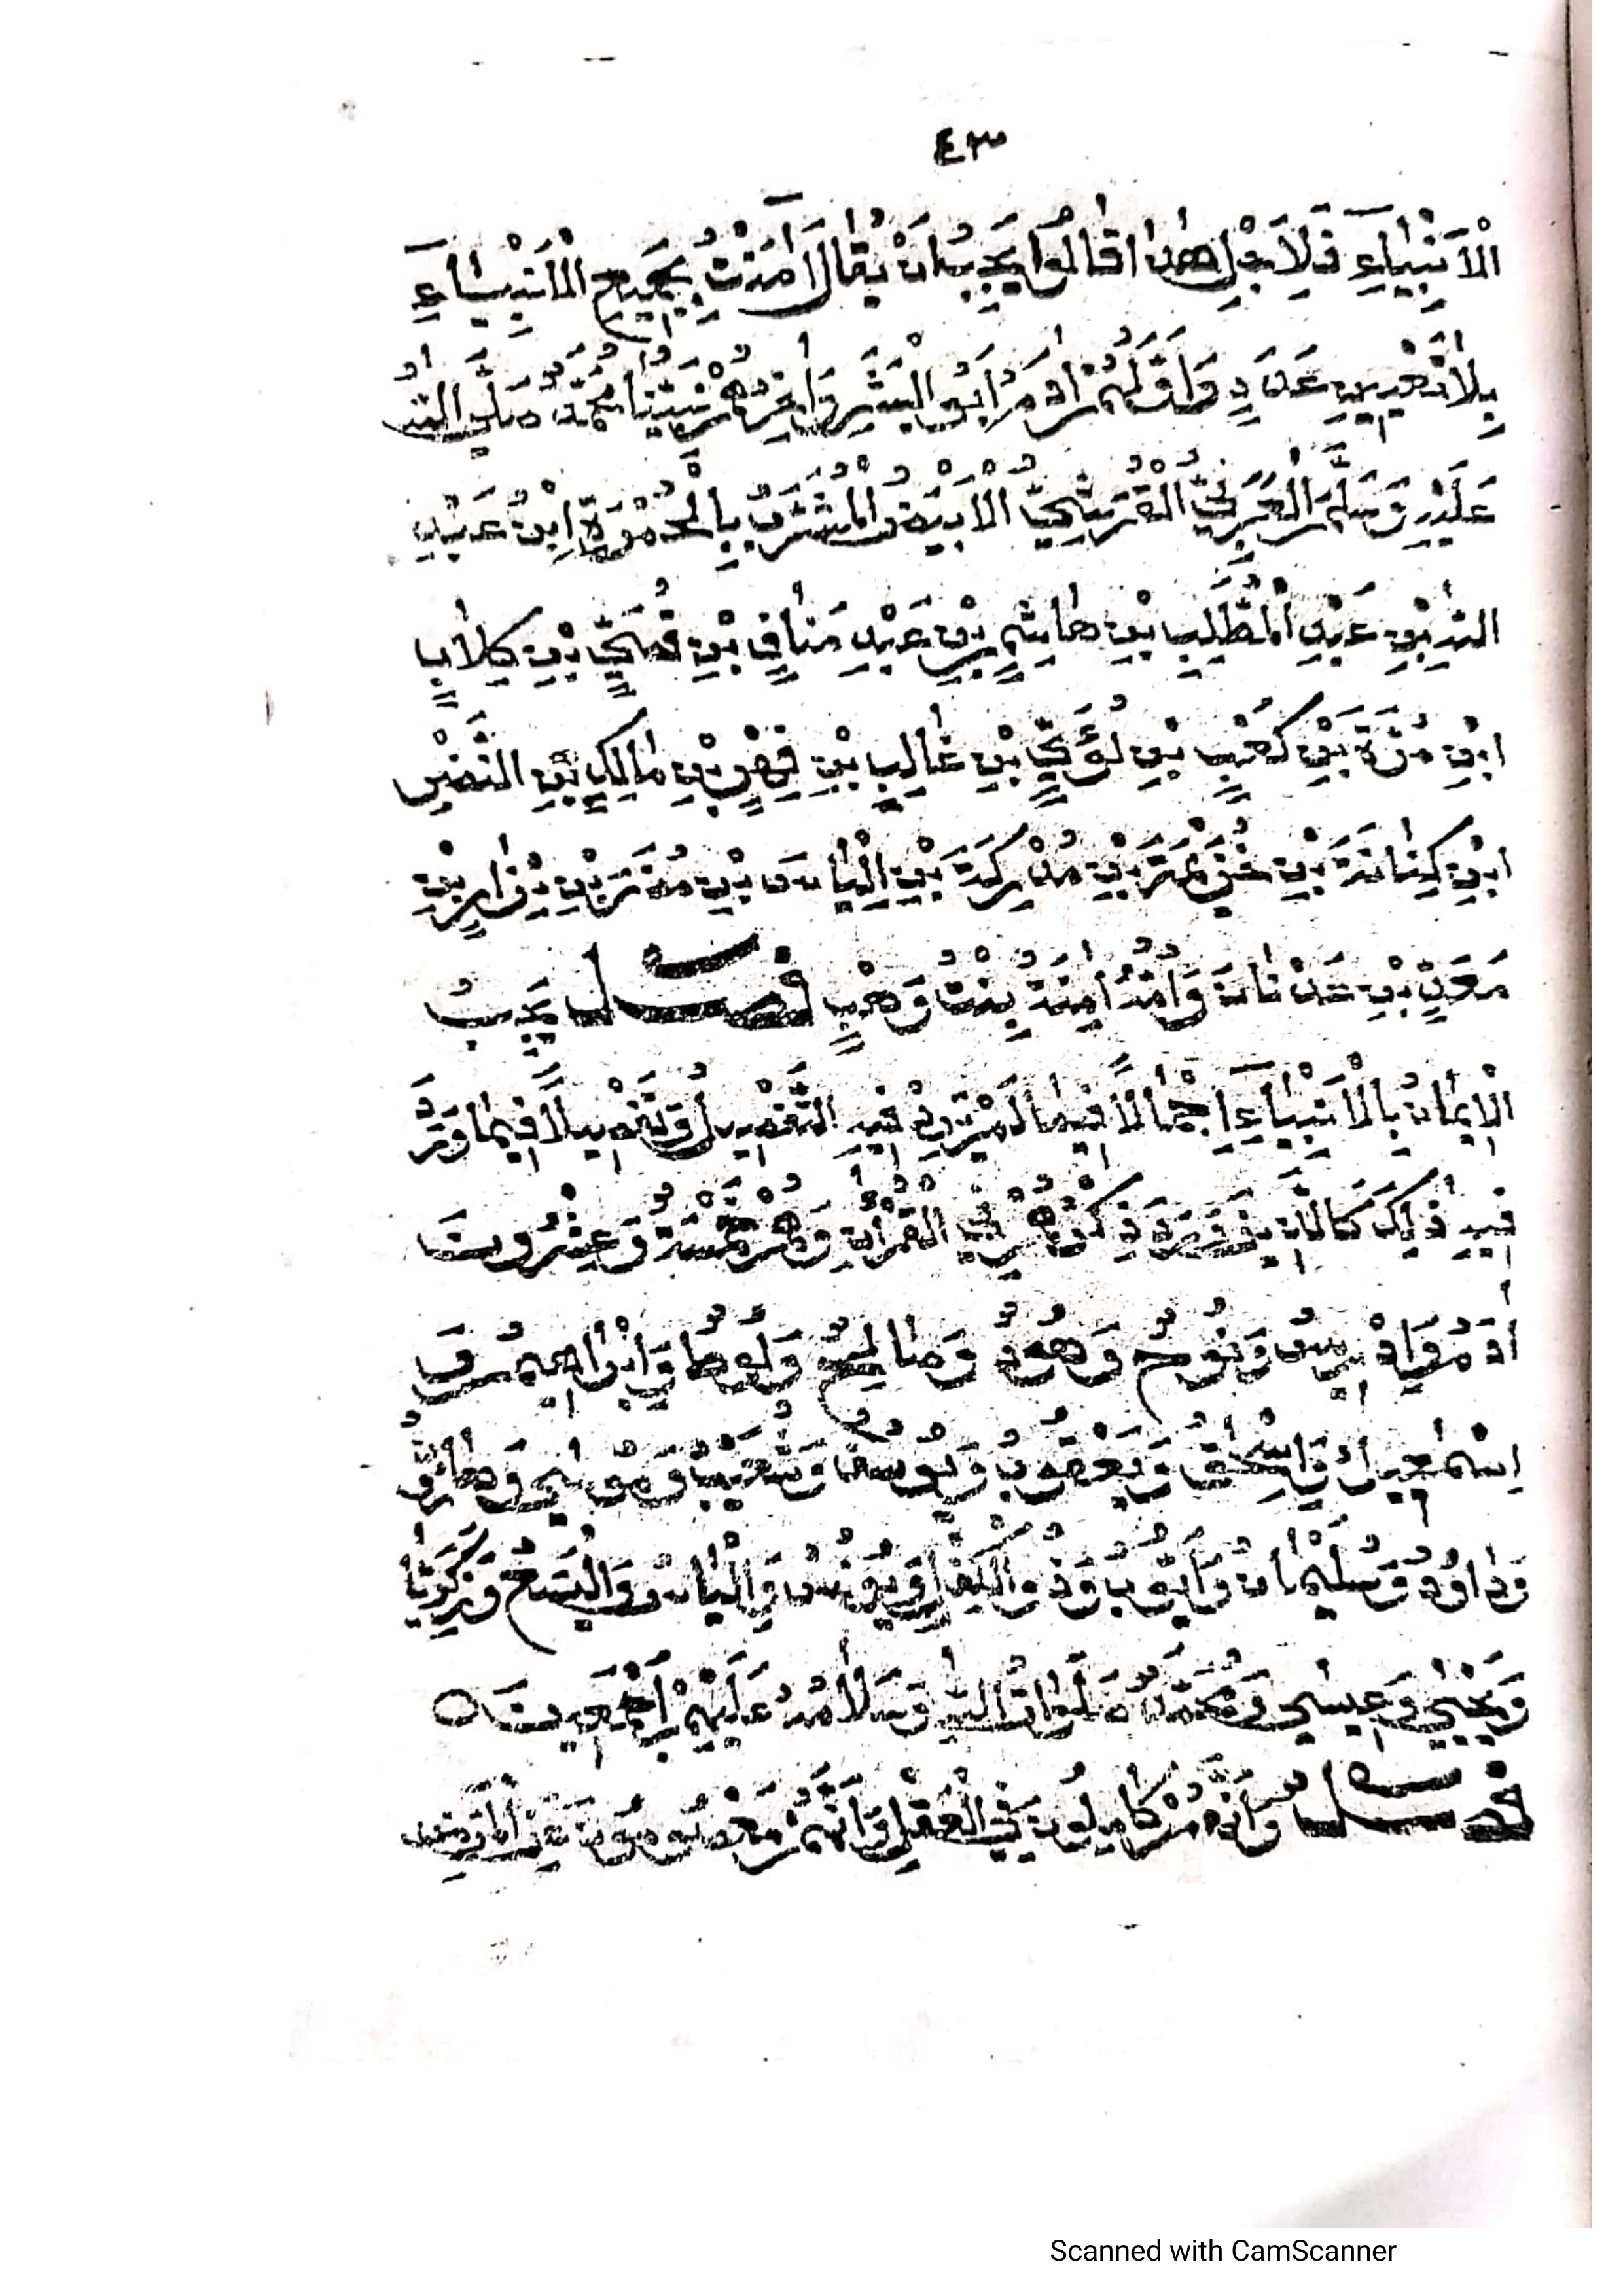 ٤٣
الْاَنْبِيَاءِ فَلِاَجْلِ هٰذَا قَالُوا يَجِبُ اَنْ يُقَالَ اٰمَنْتُ بِجَمِيعِ الْاَنْبِيَاءِ
بِلَا تَعْيِينِ عَدَدٍ وَاَوَّلُهُمْ اٰدَمُ اَبُو الْبَشَرِ وَاٰخِرُهُمْ نَبِيُّنَا مُحَمَّدٌ صَلَّى اللّٰهُ
عَلَيْهِ وَسَلَّمَ الْعَرَبِيُّ الْقُرَيْشِيُّ الْاَبْيَضُ الْمُشْرَبُ بِالْحُمْرَةِ ابْنُ عَبْدِ
اللّٰهِ بْنِ عَبْدِ الْمُطَّلِبِ بْنِ هَاشِمِ بْنِ عَبْدِ مَنَافِ بْنِ قُصَيِّ بْنِ كِلَابٍ
ابْنِ مُرَّةَ بْنِ كَعْبِ بْنِ لُؤَيِّ بْنِ غَالِبِ بْنِ فِهْرِ بْنِ مَالِكِ بْنِ النَّضْرِ
ابْنِ كِنَانَةَ بْنِ خُزَيْمَةَ بْنِ مُدْرِكَةَ بْنِ اِلْيَاسَ بْنِ مُضَرَ بْنِ نِزَارِ بْنِ
مَعَدِّ بْنِ عَدْنَانَ وَاُمُّهُ اٰمِنَةُ بِنْتُ وَهْبٍ فصل يَجِبُ
الْاِيمَانُ بِالْاَنْبِيَاءِ اِجْمَالًا فِيمَا لَمْ يَرِدْ فِيهِ التَّفْصِيلُ وَتَفْصِيلًا فِيمَا وَرَدَ
فِيهِ ذٰلِكَ كَالَّذِينَ وَرَدَ ذِكْرُهُمْ فِي الْقُرْاٰنِ وَهُمْ خَمْسَةٌ وَعِشْرُونَ
اٰدَمُ وَاِدْرِيسُ وَنُوحٌ وَهُودٌ وَصَالِحٌ وَلُوطٌ وَاِبْرَاهِيمُ وَ
اِسْمٰعِيلُ وَاِسْحٰقُ وَيَعْقُوبُ وَيُوسُفُ وَشُعَيْبٌ وَمُوسٰى وَهَارُونُ
وَدَاوُدُ وَسُلَيْمَانُ وَاَيُّوبُ وَذُو الْكِفْلِ وَيُونُسُ وَاِلْيَاسُ وَالْيَسَعُ وَزَكَرِيَّا
وَيَحْيٰى وَعِيسٰى وَمُحَمَّدٌ صَلَوَاتُ اللّٰهِ وَسَلَامُهُ عَلَيْهِمْ اَجْمَعِينَ ○
فصل وَاَنَّهُمْ كَامِلُونَ فِي الْعَقْلِ وَاَنَّهُمْ مَعْصُومُونَ مِنَ
Scanned with CamScanner